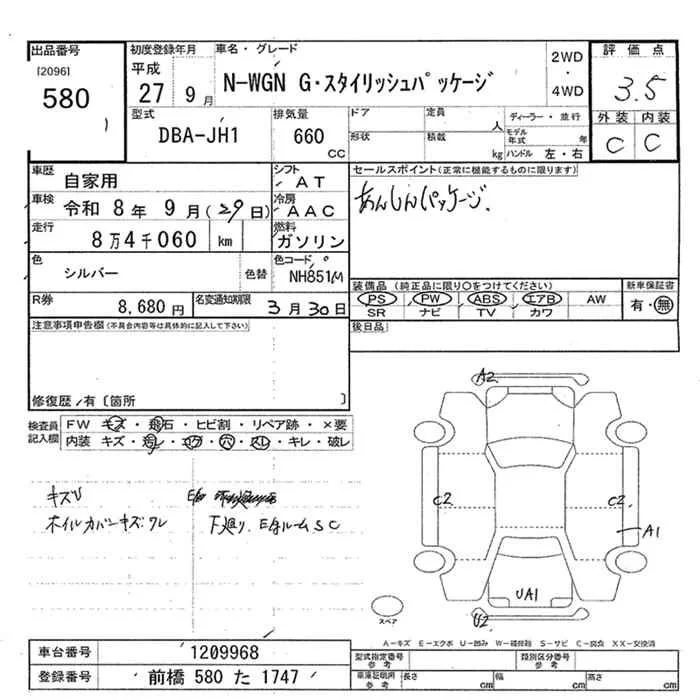 出品番号
[2096]
580
初度登録年月
平成
27 9月
車名・グレード
N-WGN G・スタイリッシュパッケージ
2WD
・
4WD
評価点
3.5
外装 内装
C C
型式
DBA-JH1
排気量
660
CC
ドア
形状
定員
人
積載
kg
ディーラー・並行
モデル年式 年
ハンドル 左・右
車歴
自家用
シフト
AT
車検
令和 8年 9月(29日)
冷房
AAC
走行
8万4千060 km
燃料
ガソリン
色
シルバー
色替
色コード
NH851M
R券
8,680円
名変通知期限
3月30日
セールスポイント(正常に機能するものに限ります)
あんしんパッケージ.
装備品(純正品に限り○をつけてください)
PS PW ABS エアB AW
SR ナビ TV カワ
新車保証書
有・無
後日品
注意事項申告欄(不具合内容等は具体的に記入して下さい)
修復歴 有〔箇所 〕
検査員記入欄
FW キズ・飛石・ヒビ割・リペア跡・×要
内装 キズ・・コゲ・穴・スレ・キレ・破レ
キズ
ホイルカバーキズ ワレ
下廻り、E/ルームSC
A2
C2
C2
A1
UA1
U2
スペア
A-キズ E-エクボ U-凹み W-補修跡 S-サビ C-腐食 XX-交換済
車台番号
1209968
登録番号
前橋 580 た 1747
型式指定番号
参考
類別区分番号
参考
車庫証明用
参考
長さ cm
幅 cm
高さ cm